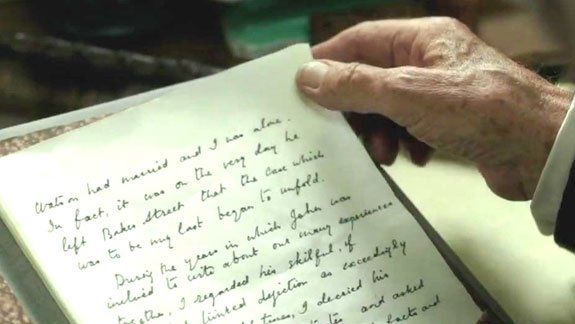 Watson had married and I was alone.
In fact, it was on the very day he
left Baker Street that the case which
was to be my last began to unfold.
During the years in which John was
inclined to write about our many experiences
together, I regarded his skilful, if
limited depiction as exceedingly
times, I decried his
and asked
facts and